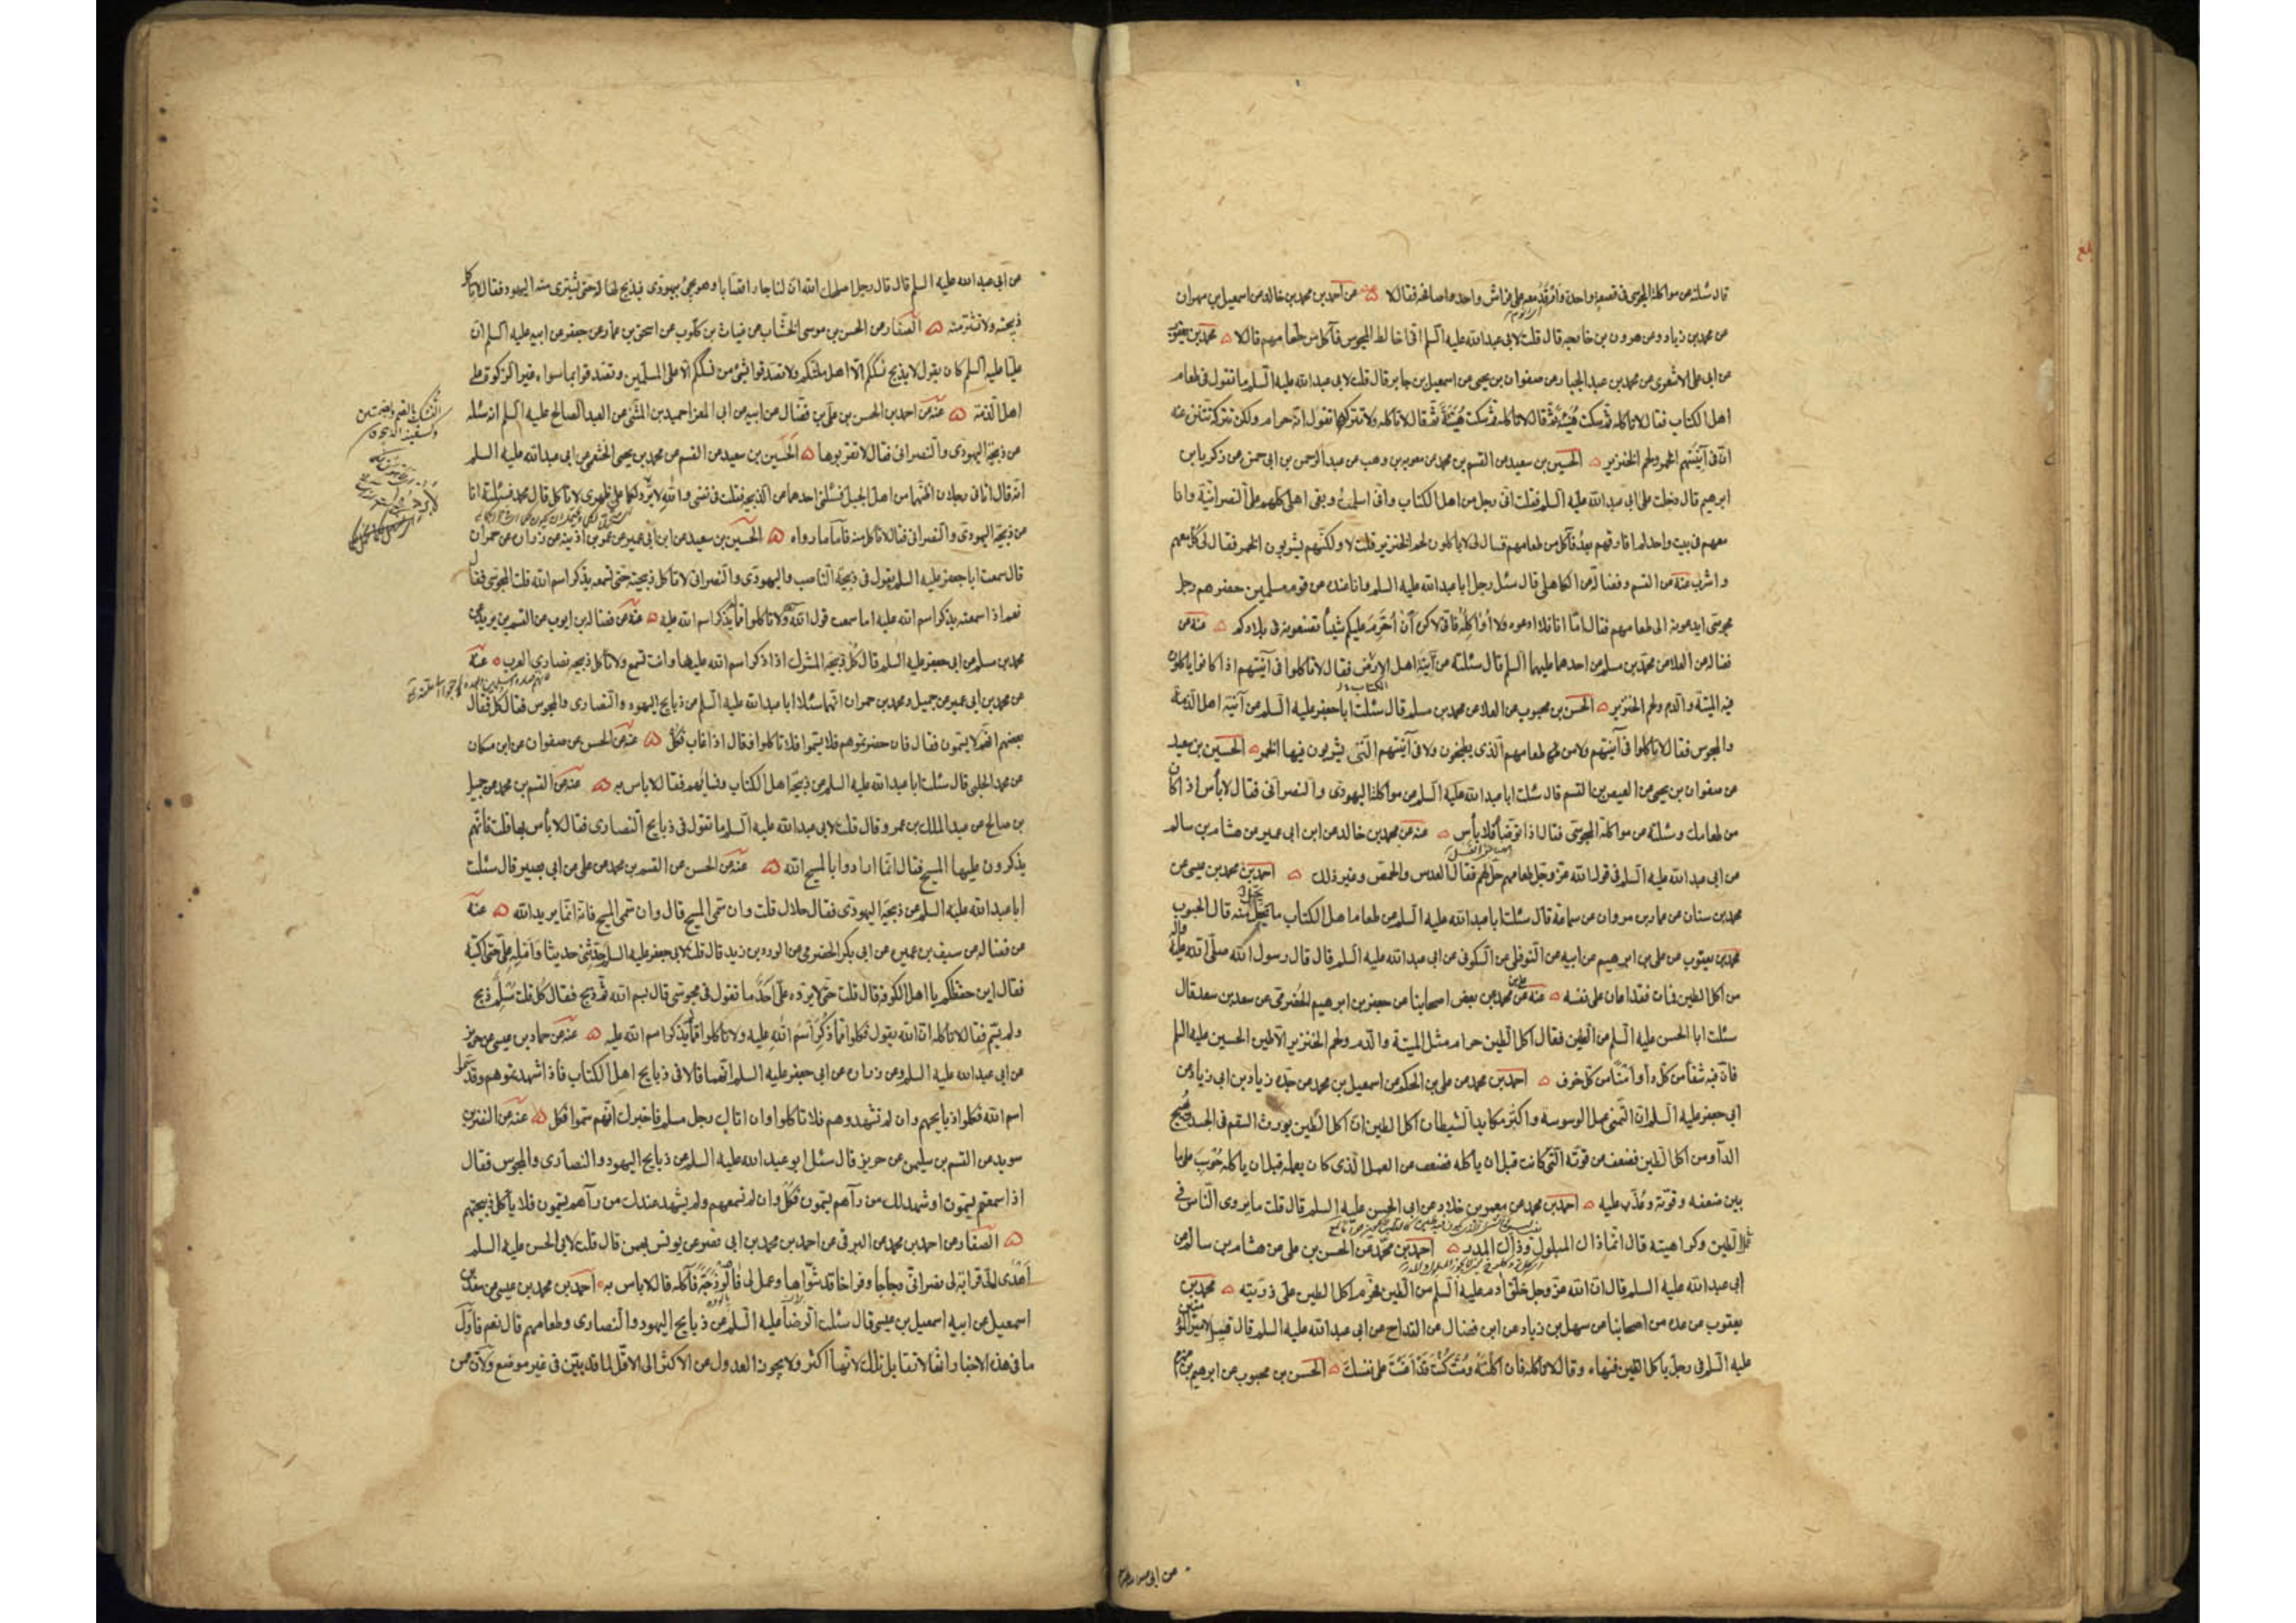 قال سئلته عن مواكلة المجوسى فى قصعة واحدة وارقد معه على فراش واحد واصافحه فقال لا عنه عن احمد بن محمد بن خالد عن اسمعيل بن مهران
عن محمد بن زياد عن هرون بن خارجه قال قلت لابى عبدالله عليه السلم انى اخالط المجوس فآكل من طعامهم قال لا محمد بن يعقوب
عن ابى على الاشعرى عن محمد بن عبد الجبار عن صفوان بن يحيى عن اسمعيل بن جابر قال قلت لابى عبدالله عليه السلم ما تقول فى طعام
اهل الكتاب فقال لا تاكله ثم سكت هنيئة ثم قال لا تاكله ثم سكت هنيئة ثم قال لا تاكله ولا تتركه تقول انه حرام ولكن تتركه تتنزه عنه
ان فى آنيتهم الخمر ولحم الخنزير الحسين بن سعيد عن القسم بن محمد عن معوية بن وهب عن عبد الرحمن بن ابى حمزه عن زكريا بن
ابرهيم قال دخلت على ابى عبدالله عليه السلم فقلت انى رجل من اهل الكتاب وانى اسلمت وبقى اهلى كلهم على النصرانية وانا
معهم فى بيت واحد لم افارقهم بعد فآكل من طعامهم فقال لى ياكلون لحم الخنزير قلت لا ولكنهم يشربون الخمر فقال لى كل معهم
واشرب عنه عن القسم وفضالة عن الكاهلى قال سئل رجل ابا عبدالله عليه السلم وانا عنده عن قوم مسلمين حضرهم رجل
مجوسى ايدعونه الى طعامهم فقال اما انا فلا ادعوه ولا اؤاكله فانى لاكره ان احرم عليكم شيئا تصنعونه فى بلادكم عنه عن
فضالة عن العلا عن محمد بن مسلم عن احدهما عليهما السلم قال سئلته عن آنية اهل الارض فقال لا تاكلوا فى آنيتهم اذا كانوا ياكلون
الكتاب
فيه الميتة والدم ولحم الخنزير الحسن بن محبوب عن العلا عن محمد بن مسلم قال سئلت ابا جعفر عليه السلم عن آنية اهل الذمة
والمجوس فقال لا تاكلوا فى آنيتهم ولا من طعامهم الذى يطبخون ولا فى آنيتهم التى يشربون فيها الخمر الحسين بن سعيد
عن صفوان بن يحيى عن العيص بن القسم قال سئلت ابا عبدالله عليه السلم عن مواكلة اليهودى والنصرانى فقال لا بأس اذا كان
من طعامك وسئلته عن مواكلة المجوسى فقال اذا توضأ فلا بأس عنه عن محمد بن خالد عن ابن ابى عمير عن هشام بن سالم
عن ابى عبدالله عليه السلم فى قول الله عز وجل طعامهم حل لكم فقال العدس والحمص وغير ذلك احمد بن محمد بن عيسى عن
محمد بن سنان عن عمار بن مروان عن سماعة قال سئلت ابا عبدالله عليه السلم عن طعام اهل الكتاب ما يحل منه قال الحبوب
محمد بن يعقوب عن على بن ابرهيم عن ابيه عن النوفلى عن السكونى عن ابى عبدالله عليه السلم قال قال رسول الله صلى الله عليه واله
من اكل الطين فمات فقد اعان على نفسه عنه عن على بن محمد عن بعض اصحابنا عن جعفر بن ابرهيم الحضرمى عن سعد بن سعد قال
سئلت ابا الحسن عليه السلم عن الطين فقال اكل الطين حرام مثل الميتة والدم ولحم الخنزير الا طين الحسين عليه السلم
فان فيه شفأ من كل داء وامنا من كل خوف احمد بن محمد عن على بن الحكم عن اسمعيل بن محمد عن جده زياد بن ابى زياد عن
ابى جعفر عليه السلم ان التمنى عمل الوسوسة واكثر مكايد الشيطان اكل الطين ان اكل الطين يورث السقم فى الجسد ويهيج
الداء ومن اكل الطين فضعف عن قوته التى كانت قبل ان ياكله فضعف من العمل الذى كان يعمله قبل ان ياكله حوسب على ما
بين ضعفه وقوته وعذب عليه احمد بن محمد عن معمر بن خلاد عن ابى الحسن عليه السلم قال قلت ما يروى الناس فى
اكل الطين وكراهيته قال انما ذاك المبلول وذاك المدر احمد بن محمد عن الحسن بن على عن هشام بن سالم عن
ابى عبدالله عليه السلم قال ان الله عز وجل خلق ادم عليه السلم من الطين فحرم اكل الطين على ذريته محمد بن
يعقوب عن عدة من اصحابنا عن سهل بن زياد عن ابن فضال عن القداح عن ابى عبدالله عليه السلم قال قيل لامير المؤمنين
عليه السلم فى رجل ياكل الطين فنهاه وقال لا تاكله فان اكلته ومت كنت قد اعنت على نفسك الحسن بن محبوب عن ابرهيم بن مهزم
عن ابى عبدالله عليه السلم قال قال رجل اصلحك الله ان لنا جارا قصابا وهو يجئ بيهودى فيذبح له حتى يشترى منه اليهود فقال لا تاكل
ذبيحته ولا تشتر منه الصفار عن الحسن بن موسى الخشاب عن غياث بن كلوب عن اسحق بن عمار عن جعفر عن ابيه عليه السلم ان
عليا عليه السلم كان يقول لا يذبح نسككم الا اهل ملتكم ولا تصدقوا بشئ من نسككم الا على المسلمين وتصدقوا بما سواه غير الزكوة على
اهل الذمة عنه عن احمد بن الحسن بن على بن فضال عن ابيه عن ابى المعزا حميد بن المثنى عن العبد الصالح عليه السلم انه سئله
عن ذبيحة اليهودى والنصرانى فقال لا تقربوها الحسين بن سعيد عن القسم عن محمد بن يحيى الخثعمى عن ابى عبدالله عليه السلم
انه قال اتانى رجلان اظنهما من اهل الجبل فسئلنى احدهما عن الذبيحه فقلت فى نفسى والله لا برد لكما على ظهرى لا تاكل قال محمد فسئلته انا
عن ذبيحة اليهودى والنصرانى فقال لا تاكل منه فاما ما رواه الحسين بن سعيد عن ابن ابى عمير عن عمر بن اذينه عن زراره عن حمران
قال سمعت ابا جعفر عليه السلم يقول فى ذبيحة الناصب واليهودى والنصرانى لا تاكل ذبيحته حتى تسمعه يذكر اسم الله قلت المجوسى فقال
نعم اذا سمعته يذكر اسم الله عليه اما سمعت قول الله ولا تاكلوا مما لم يذكر اسم الله عليه عنه عن فضالة بن ايوب عن القسم بن يزيد عن
محمد بن مسلم عن ابى جعفر عليه السلم قال كل ذبيحة المشرك اذا ذكر اسم الله عليها وانت تسمع ولا تاكل ذبيحة نصارى العرب عنه
عن محمد بن ابى عمير عن جميل ومحمد بن حمران انهما سئلا ابا عبدالله عليه السلم عن ذبايح اليهود والنصارى والمجوس فقال كل فقال
بعضهم انهم لا يسمون فقال فان حضرتموهم فلم يسموا فلا تاكلوا وقال اذا غاب فكل عنه عن الحسن عن صفوان عن ابن مسكان
عن محمد الحلبى قال سئلت ابا عبدالله عليه السلم عن ذبيحة اهل الكتاب ونسائهم فقال لا باس به عنه عن القسم بن محمد عن جميل
بن صالح عن عبد الملك بن عمرو قال قلت لابى عبدالله عليه السلم ما تقول فى ذبايح النصارى فقال لا بأس بها قلت فانهم
يذكرون عليها المسيح فقال انما ارادوا بالمسيح الله عنه عن الحسن عن القسم بن محمد عن على عن ابى بصير قال سئلت
ابا عبدالله عليه السلم عن ذبيحة اليهودى فقال حلال قلت وان سمى المسيح قال وان سمى المسيح فانه انما يريد الله عنه
عن فضالة عن سيف بن عميره عن ابى بكر الحضرمى عن الورد بن زيد قال قلت لابى جعفر عليه السلم حدثنى حديثا وامله على حتى اكتبه
فقال اين حفظكم يا اهل الكوفة قال قلت حتى لا يرده على احد ما تقول فى مجوسى قال بسم الله ثم ذبح فقال كل قلت مسلم ذبح
ولم يسم فقال لا تاكله ان الله يقول فكلوا مما ذكر اسم الله عليه ولا تاكلوا مما لم يذكر اسم الله عليه عنه عن حماد بن عيسى عن حريز
عن ابى عبدالله عليه السلم وعن زراره عن ابى جعفر عليه السلم انهما قالا فى ذبايح اهل الكتاب فاذا شهدتموهم وقد سموا
اسم الله فكلوا ذبايحهم وان لم تشهدوهم فلا تاكلوا وان اتاك رجل مسلم فاخبرك انهم سموا فكل عنه عن النضر بن
سويد عن القسم بن سليمن عن حريز قال سئل ابو عبدالله عليه السلم عن ذبايح اليهود والنصارى والمجوس فقال
اذا سمعتهم يسمون او شهد لك من رآهم يسمون فكل وان لم تسمعهم ولم يشهد عندك من رآهم يسمون فلا تاكل ذبيحتهم
الصفار عن احمد بن محمد عن البرقى عن احمد بن محمد بن ابى نصر عن يونس بن بهمن قال قلت لابى الحسن عليه السلم
اهدى الى قرابة لى نصرانى دجاجا وفراخا قد شواها وعمل لى فالوذجة فآكله قال لا باس به احمد بن محمد بن عيسى عن سعد بن
اسمعيل عن ابيه اسمعيل بن عيسى قال سئلت الرضا عليه السلم عن ذبايح اليهود والنصارى وطعامهم قال نعم فاول
ما فى هذه الاخبار انها لا تقابل تلك لانها اكثر ولا يجوز العدول عن الاكثر الى الاقل لما قد بين فى غير موضع ولان من